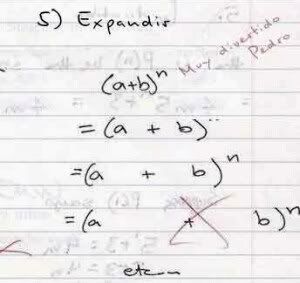 5) Expandir
(a+b)ⁿ
Muy divertido
Pedro
= (a + b)ⁿ
=(a + b)ⁿ
=(a + b)ⁿ
etc...